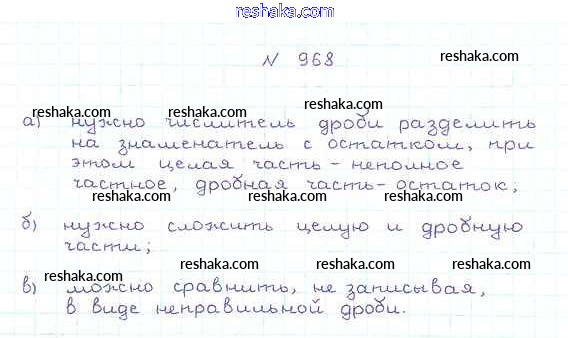 reshaka.com
N 968
reshaka.com
reshaka.com reshaka.com reshaka.com
а) нужно числитель дроби разделить
на знаменатель с остатком, при
reshaka.com reshaka.com reshaka.com
этом целая часть - неполное
частное, дробная часть - остаток;
reshaka.com reshaka.com reshaka.com
б) нужно сложить целую и дробную
части;
reshaka.com reshaka.com reshaka.com
в) можно сравнить, не записывая,
reshaka.com reshaka.com
в виде неправильной дроби.